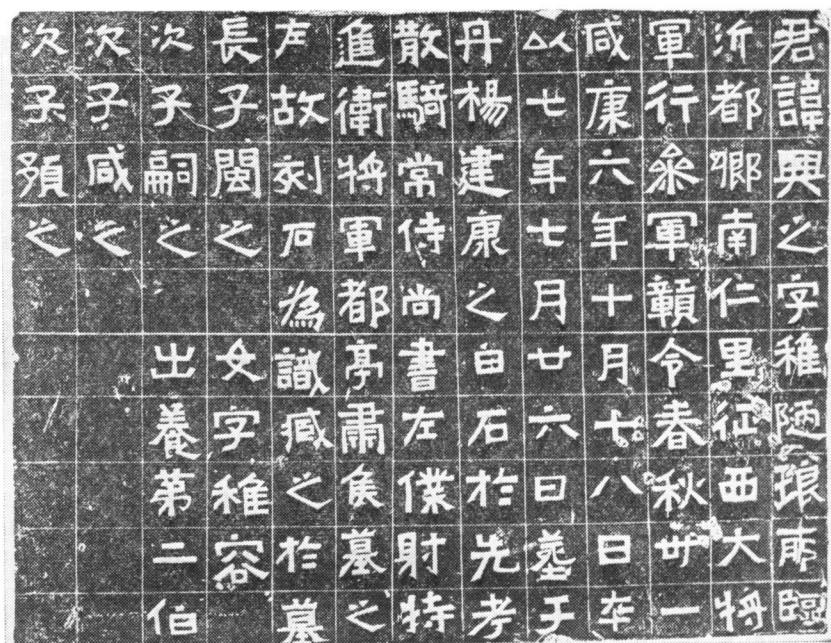 君諱興之字稚陋琅耶臨
沂都鄉南仁里征西大將
軍行參軍贛令春秋卅一
咸康六年十月十八日卒
以七年七月廿六日葬于
丹楊建康之白石於先考
散騎常侍尚書左僕射特
進衛將軍都亭肅侯墓之
左故刻石為識臧之於墓
長子閩之 女字稚容
次子嗣之 出養第二伯
次子咸之
次子預之